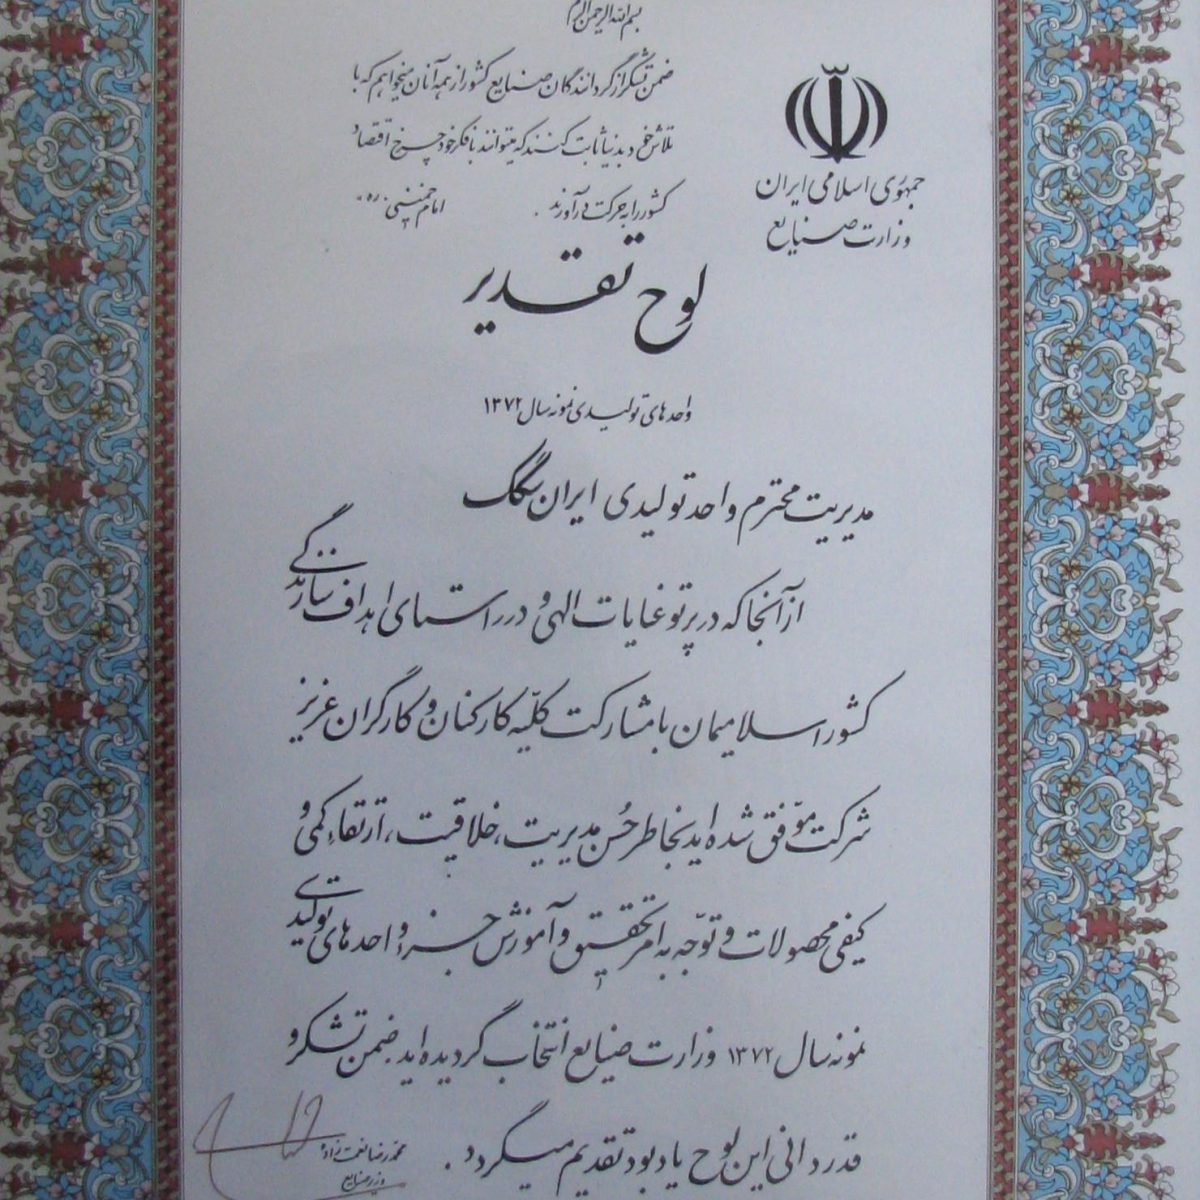 بسم الله الرحمن الرحیم
ضمن تشکر از گردانندگان صنایع کشور از همه آنان میخواهم که با
تلاش خود به دنیا ثابت کنند که میتوانند با فکر خود چرخ اقتصاد
کشور را به حرکت درآورند .
امام خمینی «ره»
جمهوری اسلامی ایران
وزارت صنایع
لوح تقدیر
واحدهای تولیدی نمونه سال ۱۳۷۲
مدیریت محترم واحد تولیدی ایران سگک
از آنجا که در پرتو عنایات الهی و در راستای اهداف سازندگی
کشور اسلامیمان با مشارکت کلیّه کارکنان و کارگران عزیز
شرکت موّفق شده اید بخاطر حُسن مدیریت، خلاقیت، ارتقاء کمی و
کیفی محصولات و توّجه به امر تحقیق و آموزش جزء واحدهای تولیدی
نمونه سال ۱۳۷۲ وزارت صنایع انتخاب گردیده اید. ضمن تشکر و
قدردانی این لوح یادبود تقدیم میگردد .
محمدرضا نعمت زاده
وزیر صنایع